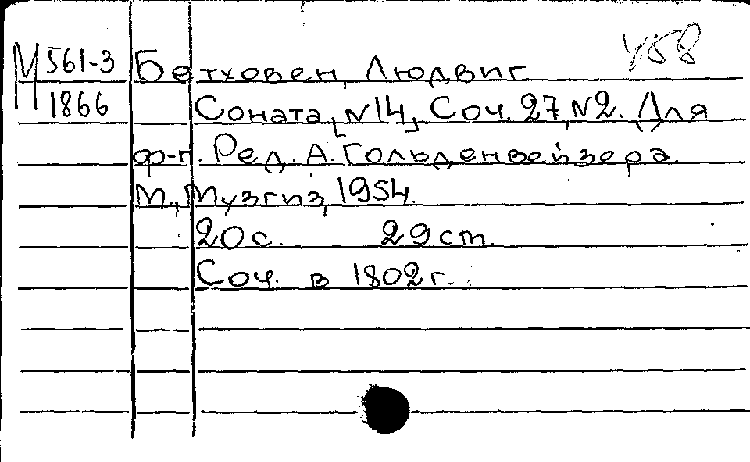 М 561-3 Бетховен, Людвиг 458
1866 Соната [№14], Соч. 27, №2. Для
ф-п. Ред. А. Гольденвейзера.
М., Музгиз, 1954.
20 с. 29 см.
Соч. в 1802 г.